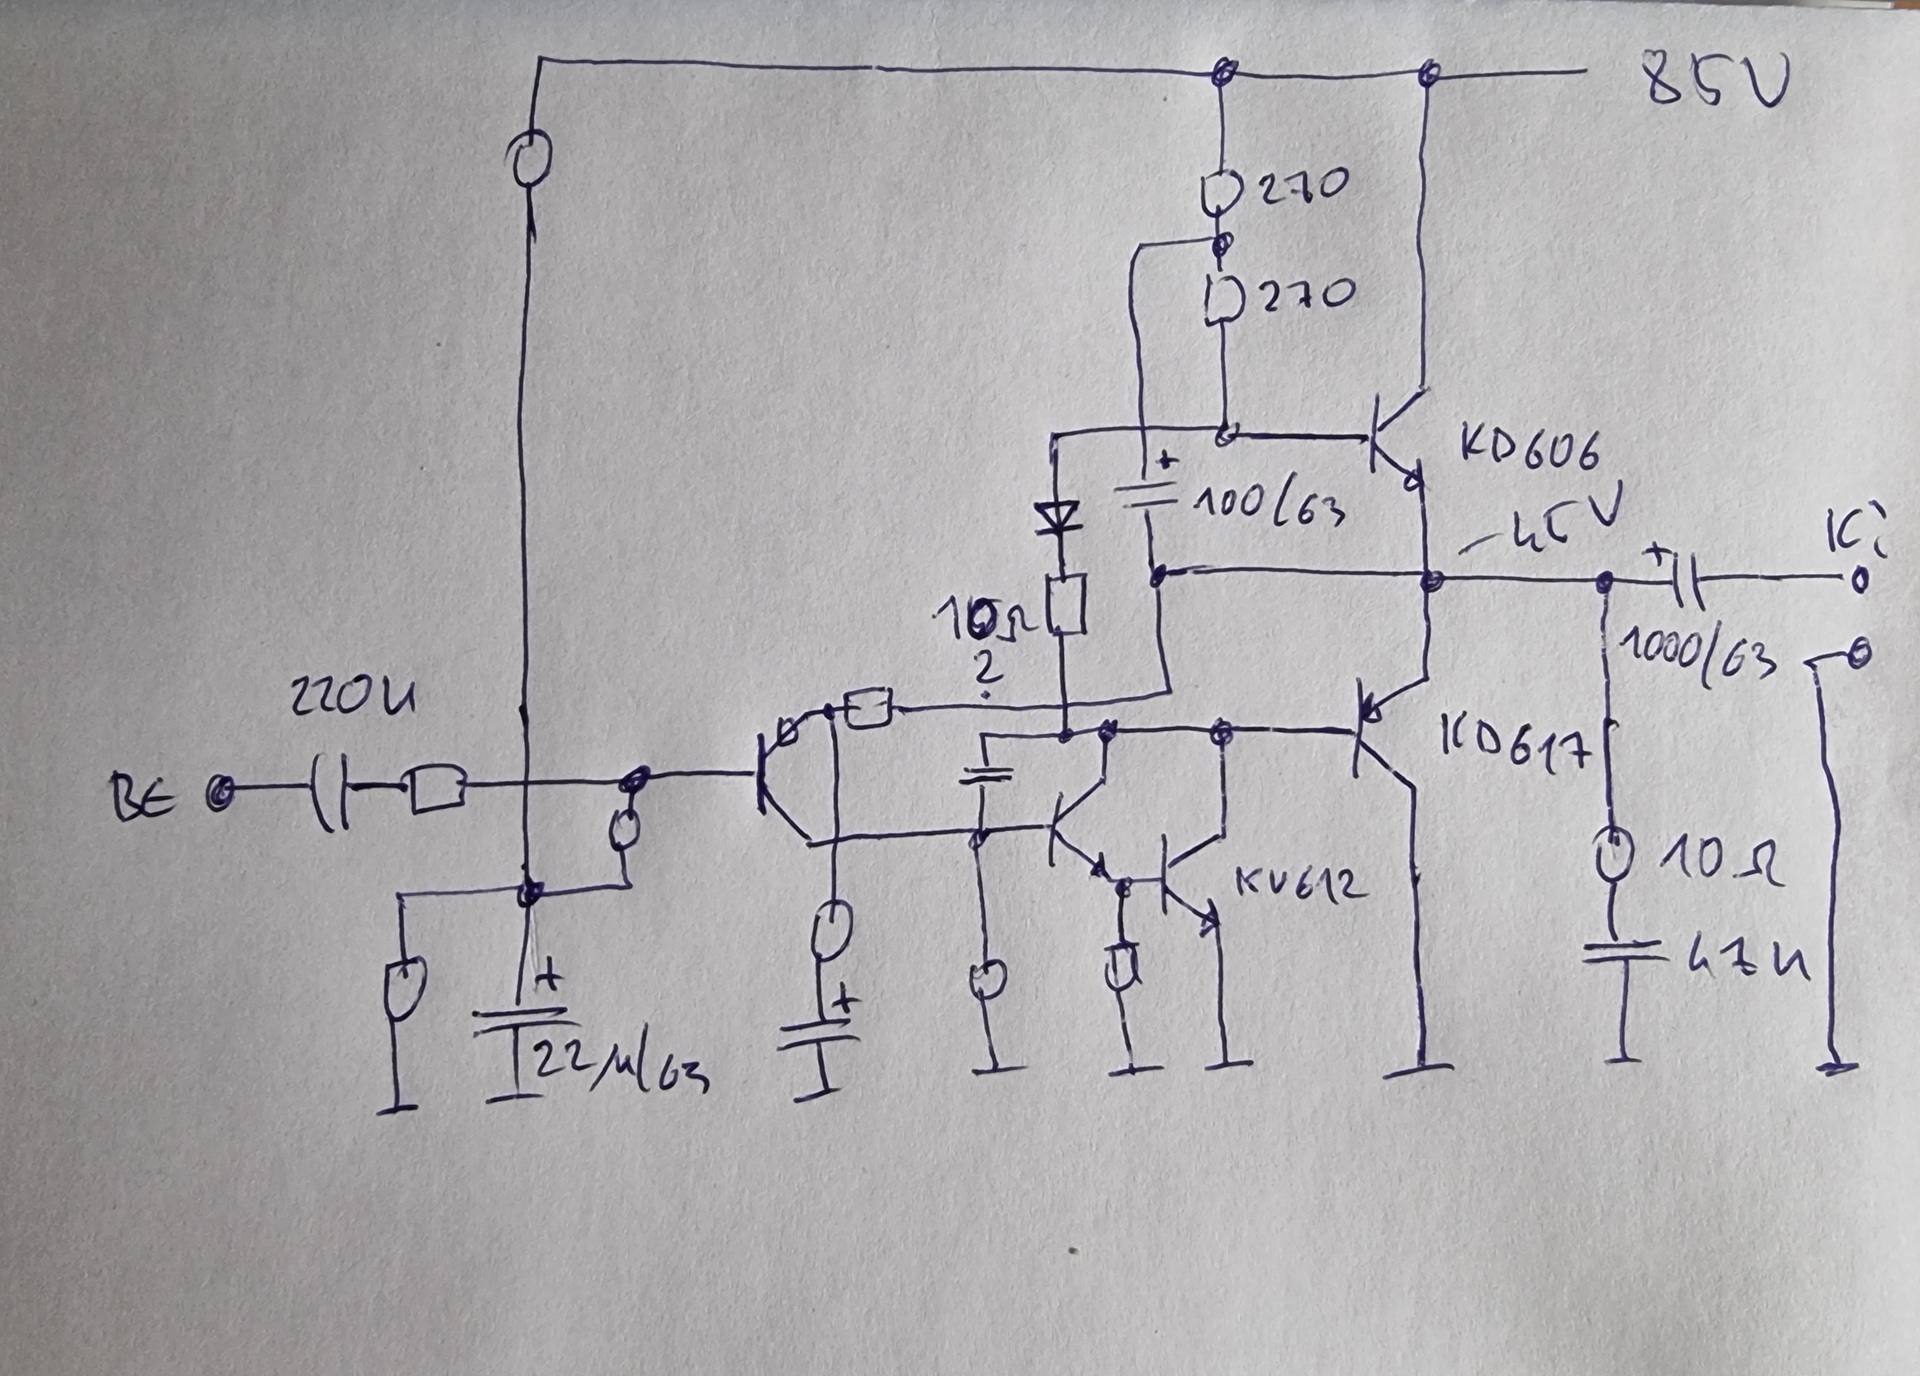 85V
270
270
KD606
+
100/63
45V
+
Ki
10Ω
?
1000/63
220n
KD617
BE
10Ω
KU612
47n
+
+
22µ/63